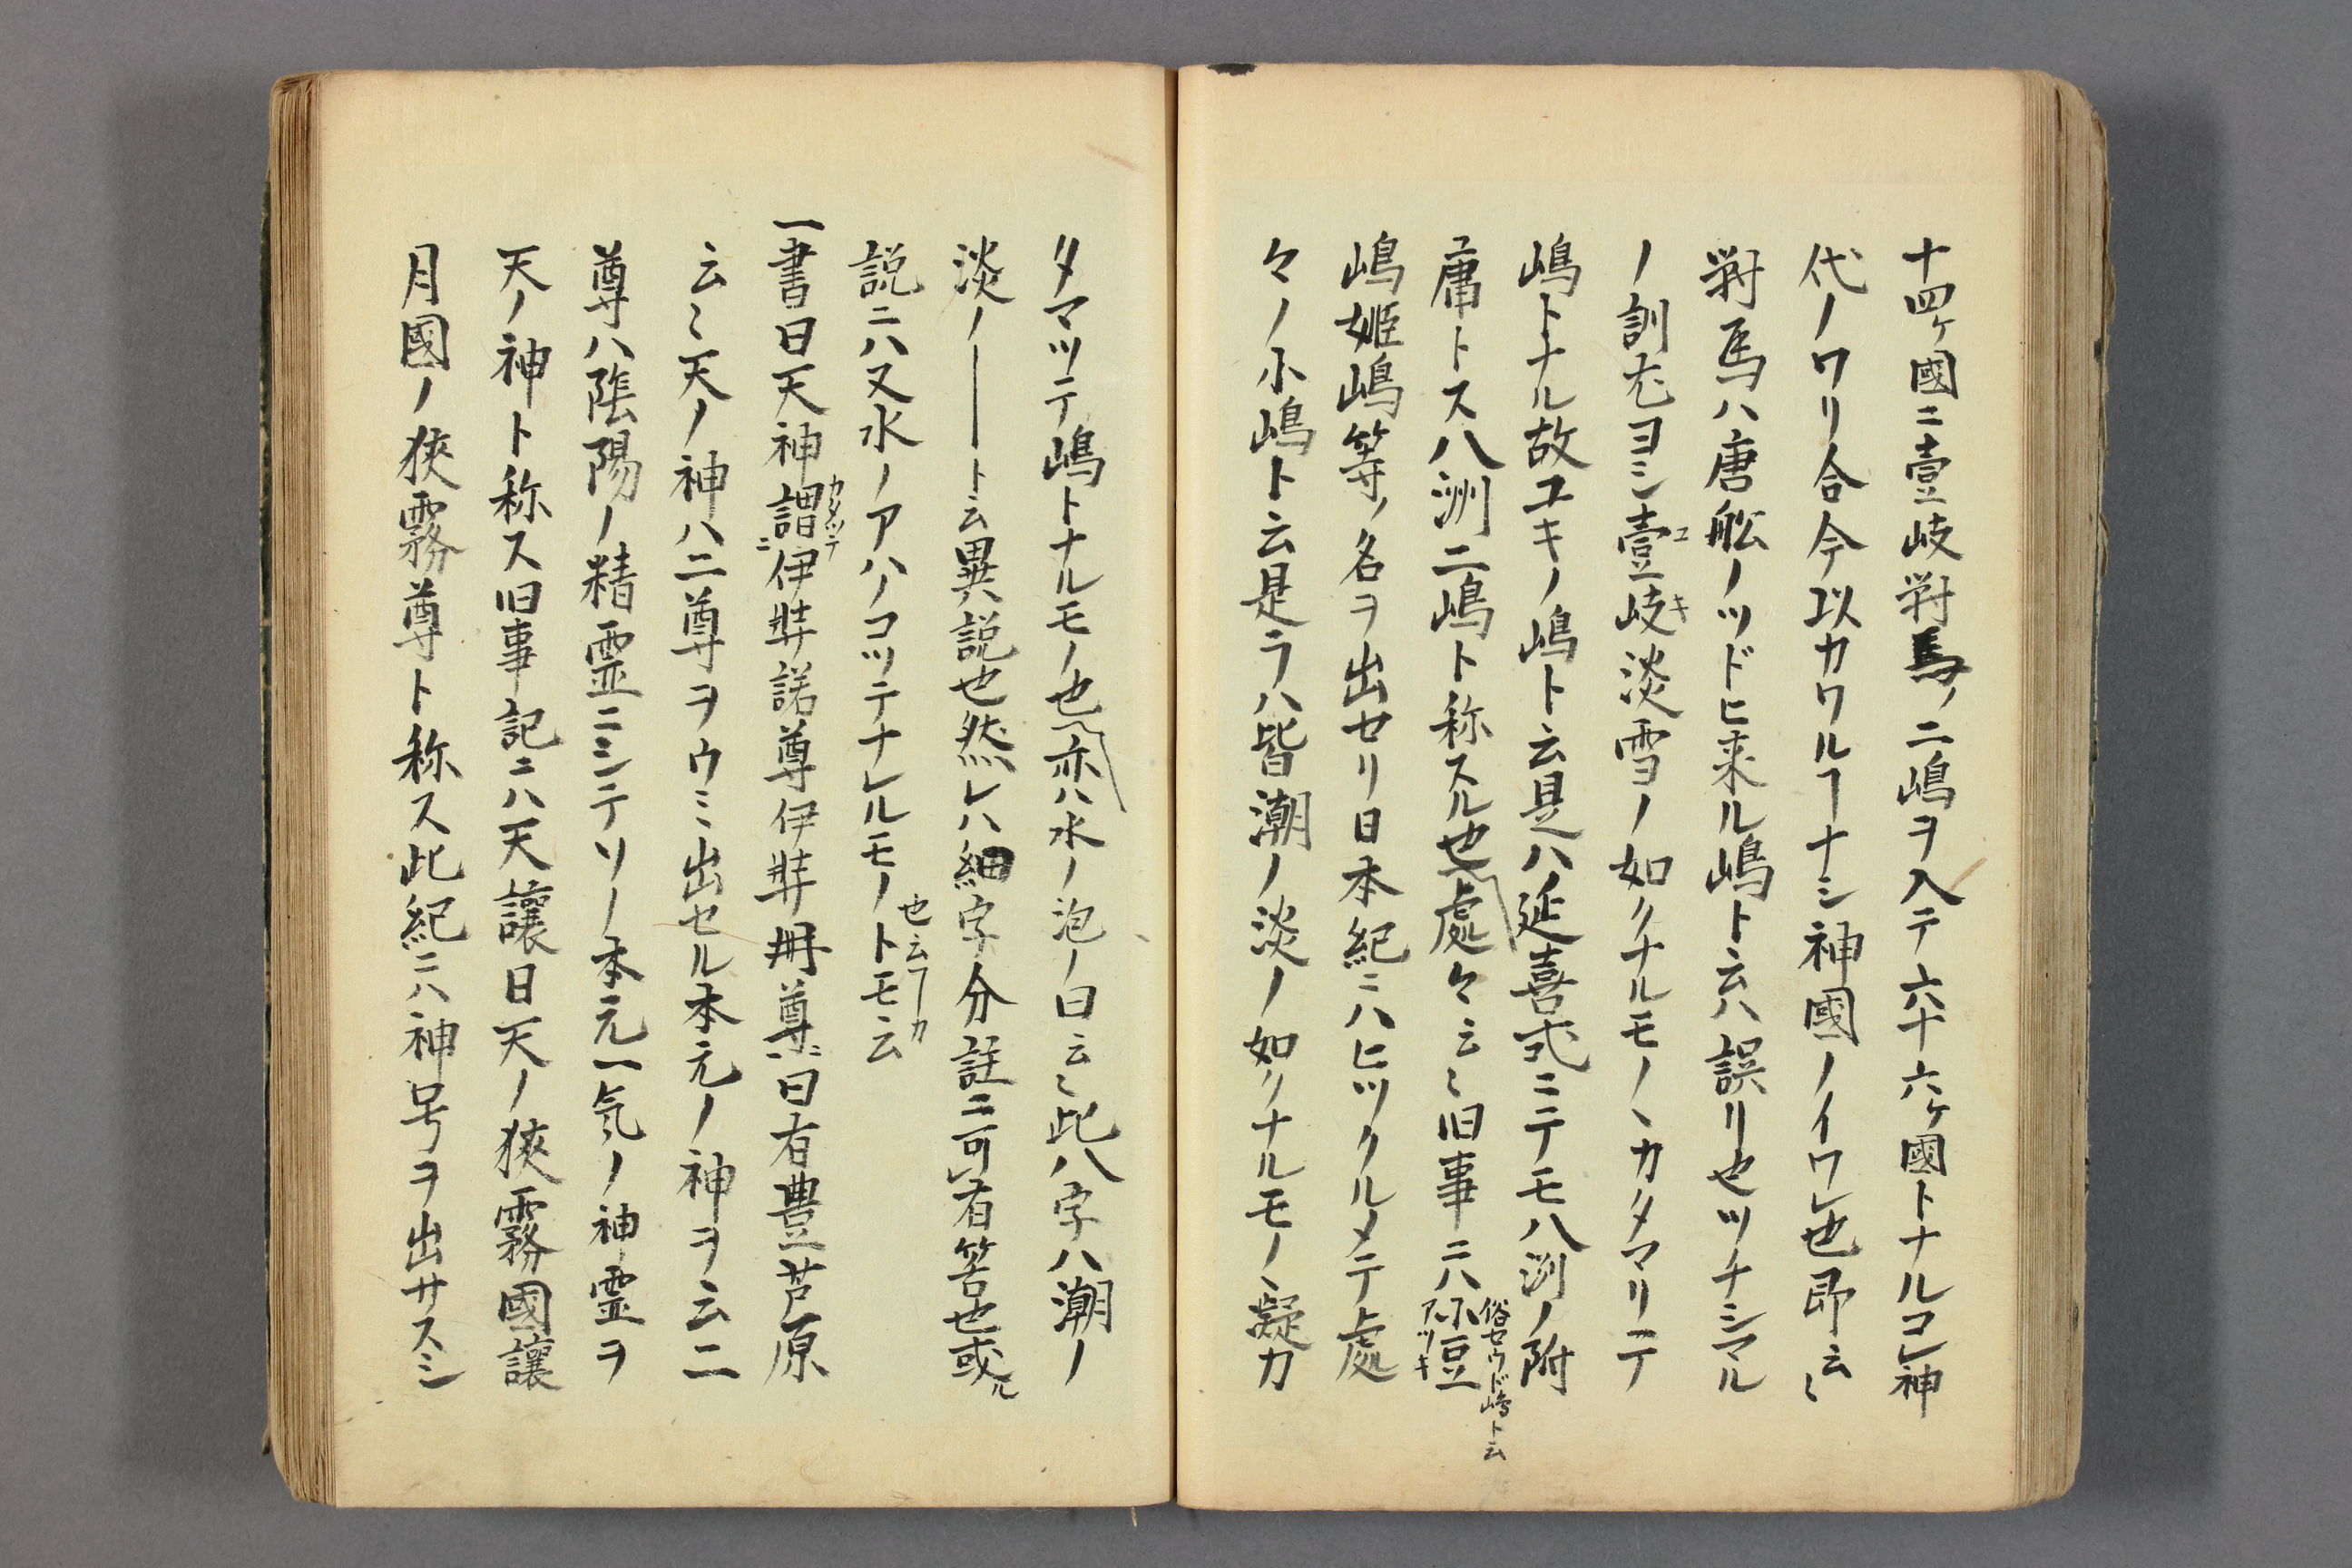 十四ケ國ニ壹岐対馬ノ二嶋ヲ入テ六十六ケ國トナルコレ神
代ノワリ合今以カワルヿナシ神國ノイワレ也即云〻
対馬ハ唐舩ノツドヒ来ル嶋ト云ハ誤リ也ツナシマル
ノ訓尤ヨシ壹岐淡雪ノ如クナルモノヽカタマリテ
ユキ
嶋トナル故ユキノ嶋ト云是ハ延喜式ニテモ八洲ノ附
庸トス八洲二嶋ト称スル也處々云〻旧事ニハ小豆
俗セウド嶋ト云
アツキ
嶋姫嶋等ノ名ヲ出セリ日本紀ニハヒツクルメテ處
々ノ小嶋ト云是ラハ皆潮ノ淡ノ如クナルモノヽ凝カ
タマツテ嶋トナルモノ也亦ハ水ノ泡ノ曰云〻此八字ハ潮ノ
淡ノ――ト云異説也然レハ細字分註ニ可有筈也或ル
説ニハ又水ノアハノコツテナレルモノトモ云
也云ヿカ
一書曰天神謂伊弉諾尊伊弉冊尊曰有豊芦原
カタツテ
ニ
云〻天ノ神ハ二尊ヲウミ出セル本元ノ神ヲ云二
尊ハ陰陽ノ精霊ニシテソノ本元一気ノ神霊ヲ
天ノ神ト称ス旧事記ニハ天讓日天ノ狹霧國讓
月國ノ狹霧尊ト称ス此紀ニハ神号ヲ出サスシ